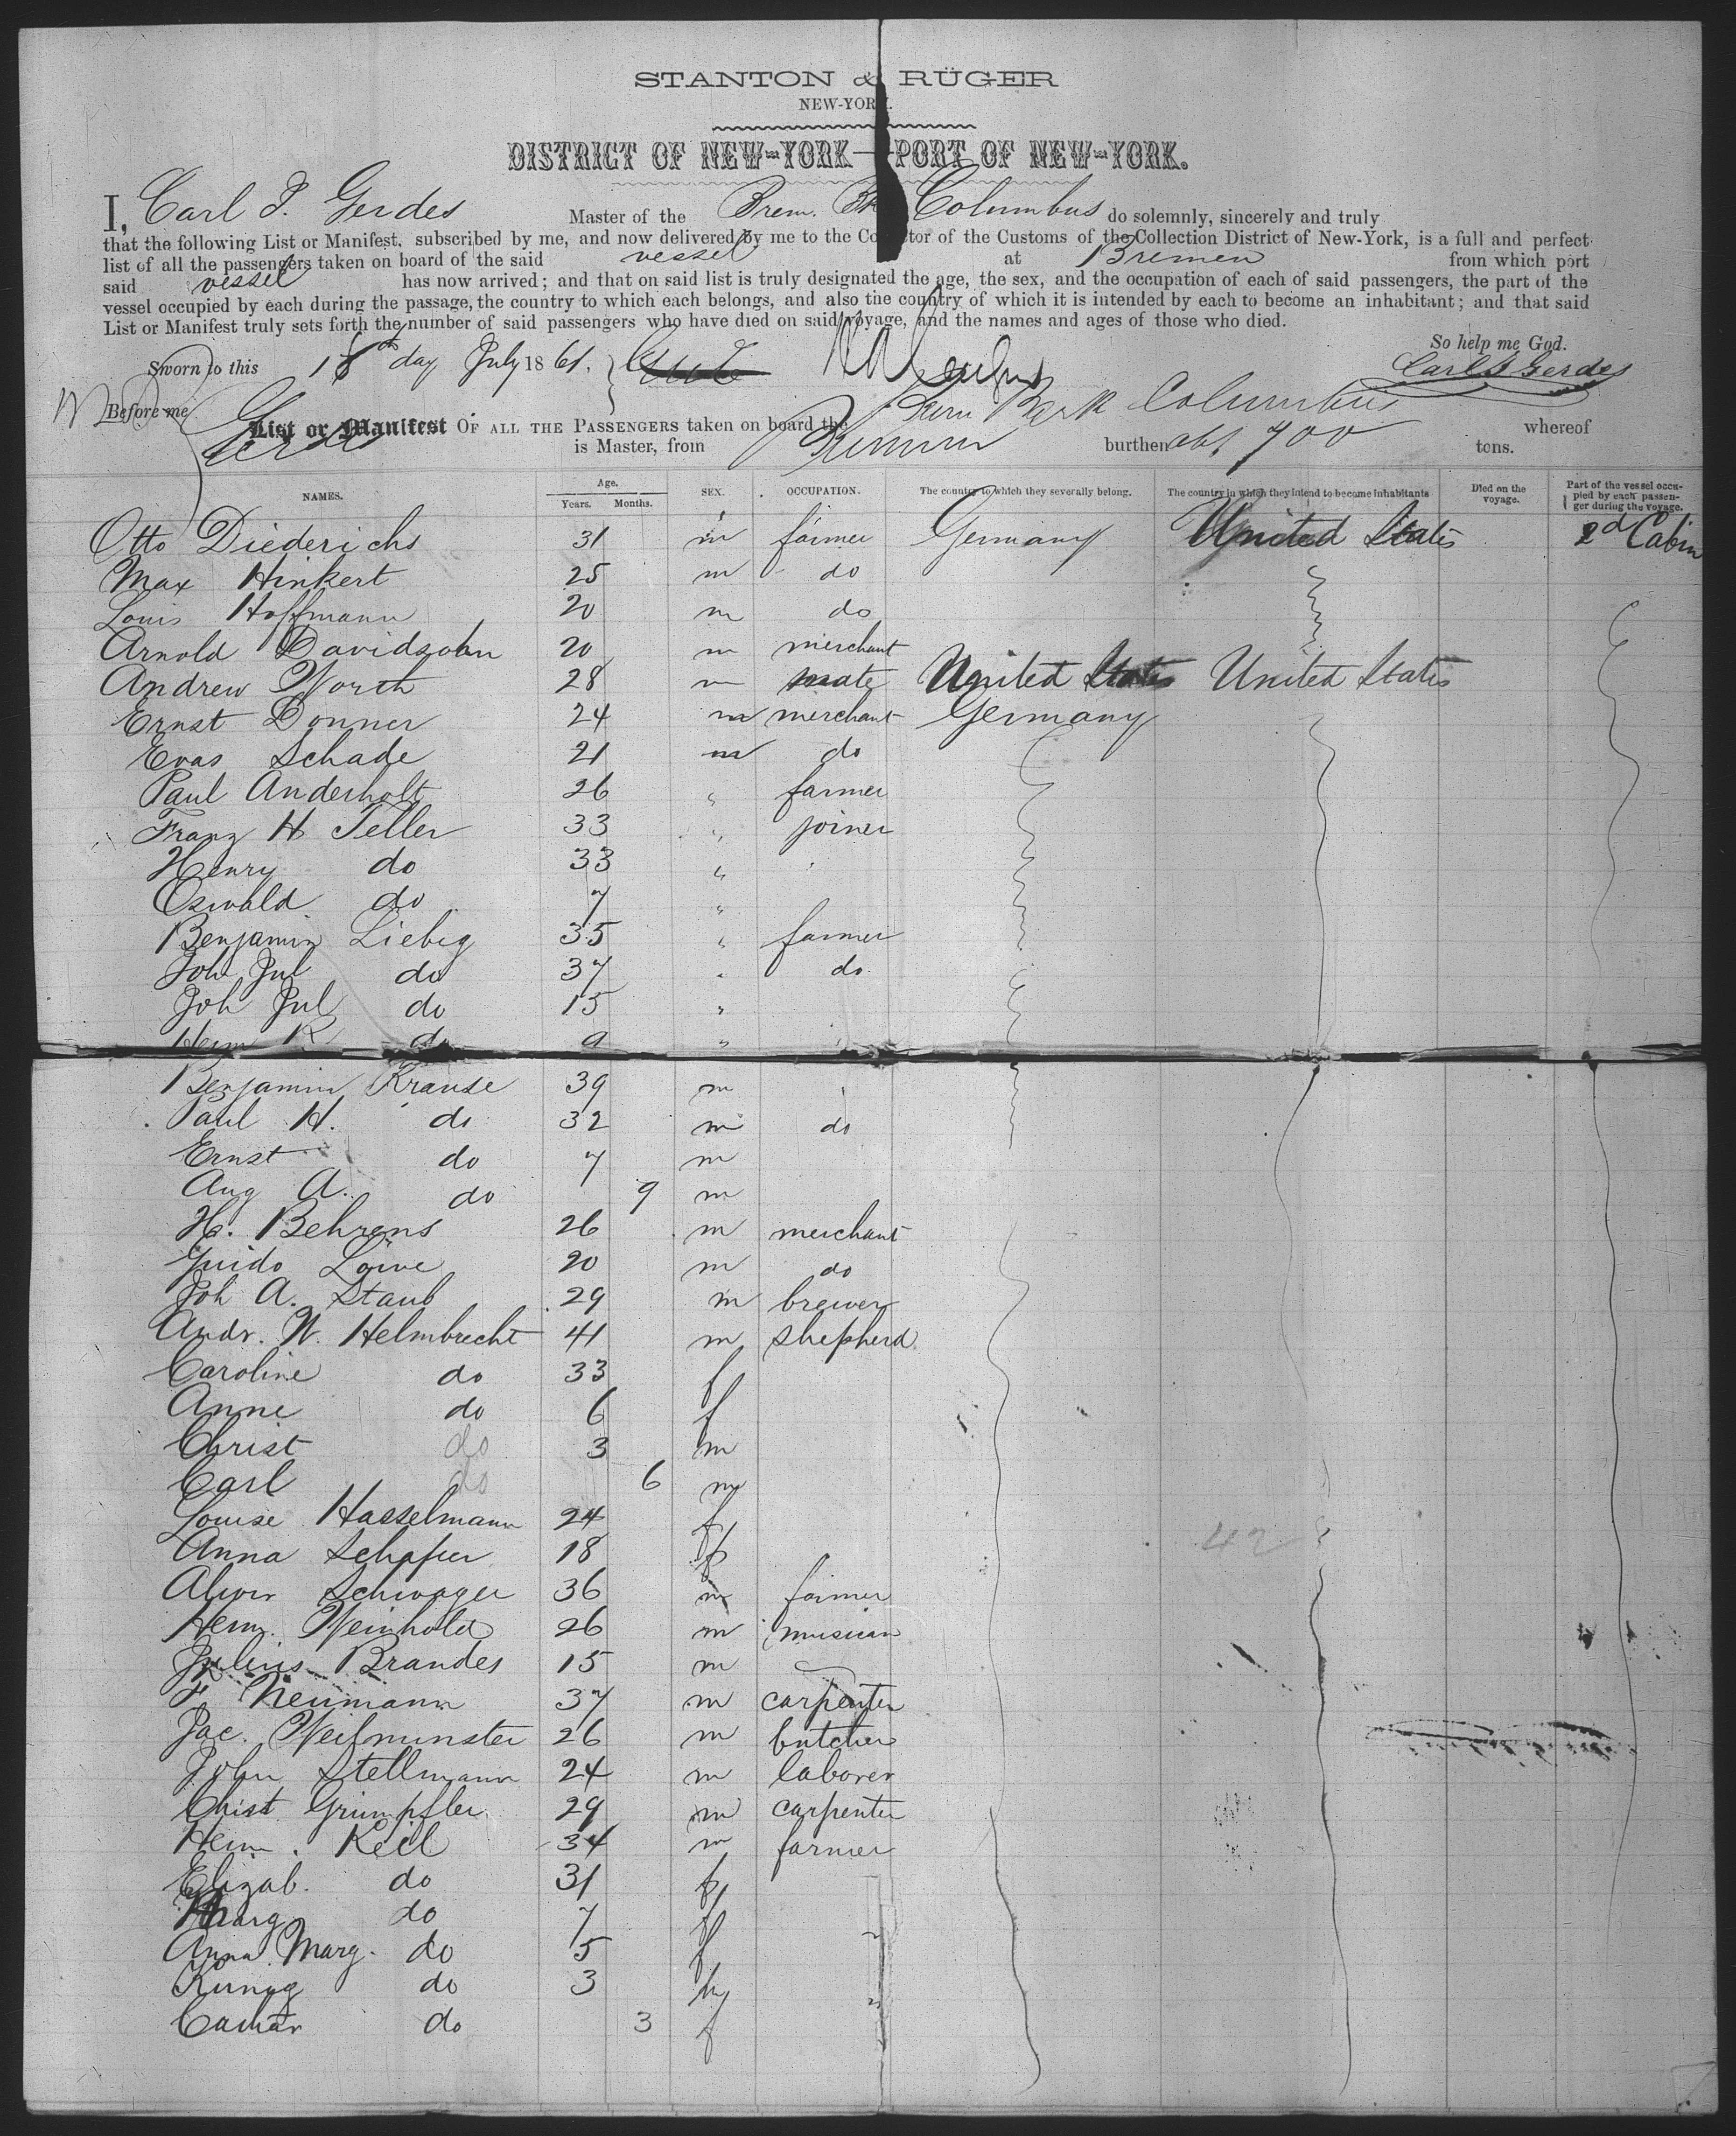 STANTON & RÜGER
NEW-YORK.
DISTRICT OF NEW-YORK—PORT OF NEW-YORK.
I, Carl J. Gerdes Master of the Brem. Bk Columbus do solemnly, sincerely and truly
that the following List or Manifest, subscribed by me, and now delivered by me to the Collector of the Customs of the Collection District of New-York, is a full and perfect
list of all the passengers taken on board of the said vessel at Bremen from which port
said vessel has now arrived; and that on said list is truly designated the age, the sex, and the occupation of each of said passengers, the part of the
vessel occupied by each during the passage, the country to which each belongs, and also the country of which it is intended by each to become an inhabitant; and that said
List or Manifest truly sets forth the number of said passengers who have died on said voyage, and the names and ages of those who died.
So help me God.
Sworn to this 18th day July 1861. Carl J Gerdes
Before me
List or Manifest OF ALL THE PASSENGERS taken on board the Brem Bark Columbus whereof
Gerdes is Master, from Bremen burthen abt 700 tons.
NAMES. Age. Years. Months. SEX. OCCUPATION. The country to which they severally belong. The country in which they intend to become inhabitants Died on the voyage. Part of the vessel occupied by each passenger during the voyage.
Otto Diederichs 31 m farmer Germany United States 2d Cabin
Max Hinkert 25 m do
Louis Hoffmann 20 m do
Arnold Davidsohn 20 m merchant
Andrew North 28 m mate United States United States
Ernst Donner 24 m merchant Germany
Evas Schade 21 m do
Paul Anderholt 26 " farmer
Franz H Teller 33 " joiner
Henry do 33 "
Oswald do 7 "
Benjamin Liebig 35 " farmer
Joh Jul do 37 " do
Joh Jul do 15 "
Herm R do 9 "
Benjamin Krause 39 m
Paul H. do 32 m do
Ernst do 7 m
Aug A. do 9 m
H. Behrens 26 m merchant
Guido Löwe 20 m do
Joh A. Staub 29 m brewer
Andr. W. Helmbrecht 41 m shepherd
Caroline do 33 f
Anne do 6 f
Christ do 3 m
Carl do 6 m
Louise Hasselmann 24 f
Anna Schafer 18 f
Alwin Schwager 36 m farmer
Herm. Weinhold 26 m musician
Julius Brandes 15 m
F. Neumann 37 m carpenter
Jac. Weilmunster 26 m butcher
John Stellmann 24 m laborer
Christ Grumpfler 29 m carpenter
Herm. Keil 34 m farmer
Elizab. do 31 f
Marg do 7 f
Anna Marg. do 5 f
Kunig do 3 f
do 3 f
42